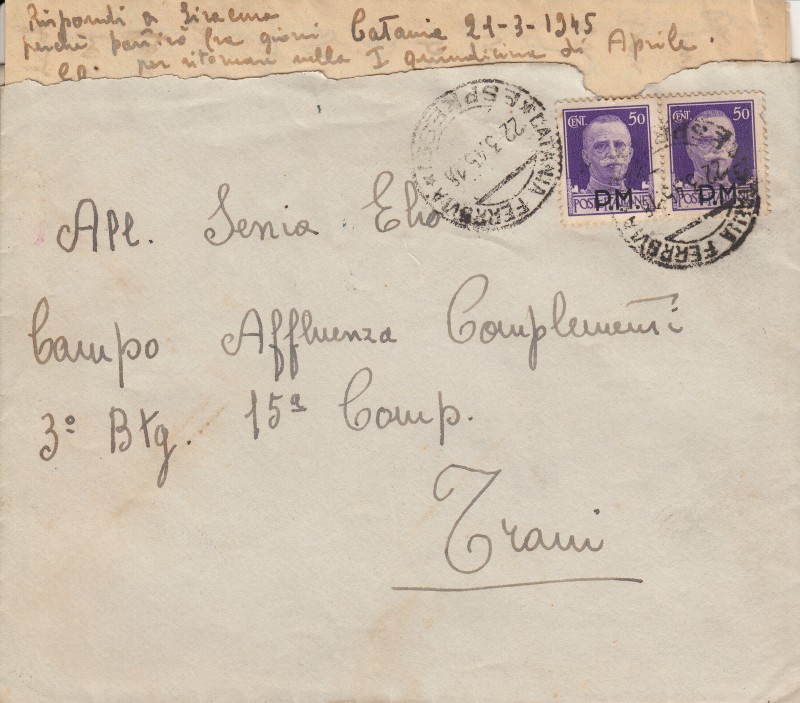 Rispondi a Siracusa
perchè partirò fra giorni Catania 21-3-1945
per ritornare nella I quindicina di Aprile.
CATANIA FERROVIA
22.3.45.18
ESPRESS
CENT. 50
POSTE ITALIANE
P.M.
CENT. 50
POSTE
P.M.
FERROVIA
Apl. Senia Elio
Campo Affluenza Complementi
3º Btg. 15ª Comp.
Trani